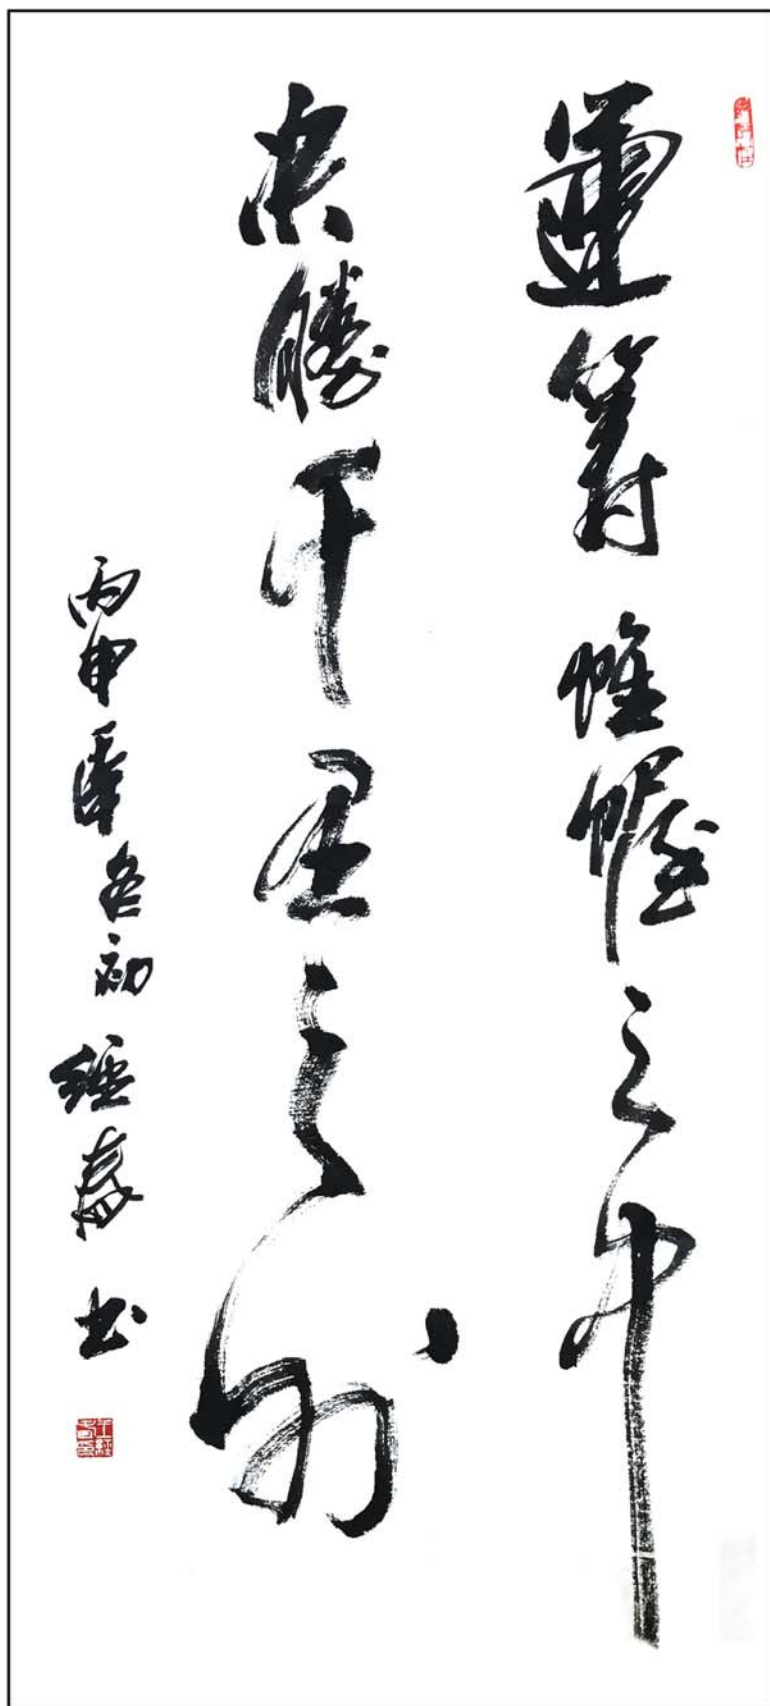 運籌帷幄之中
决勝千里之外
丙申年冬初 經 书